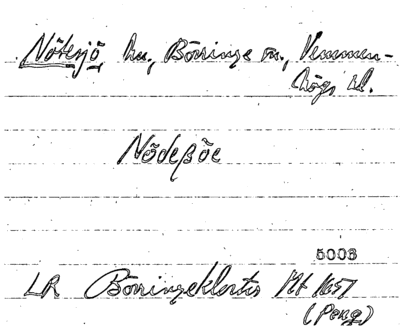 Nötesjö, hu., Börringe sn., Vemmen-
högs hd.
Nödeßöe
5003
LR Börringeklosters 1651
(Peng)